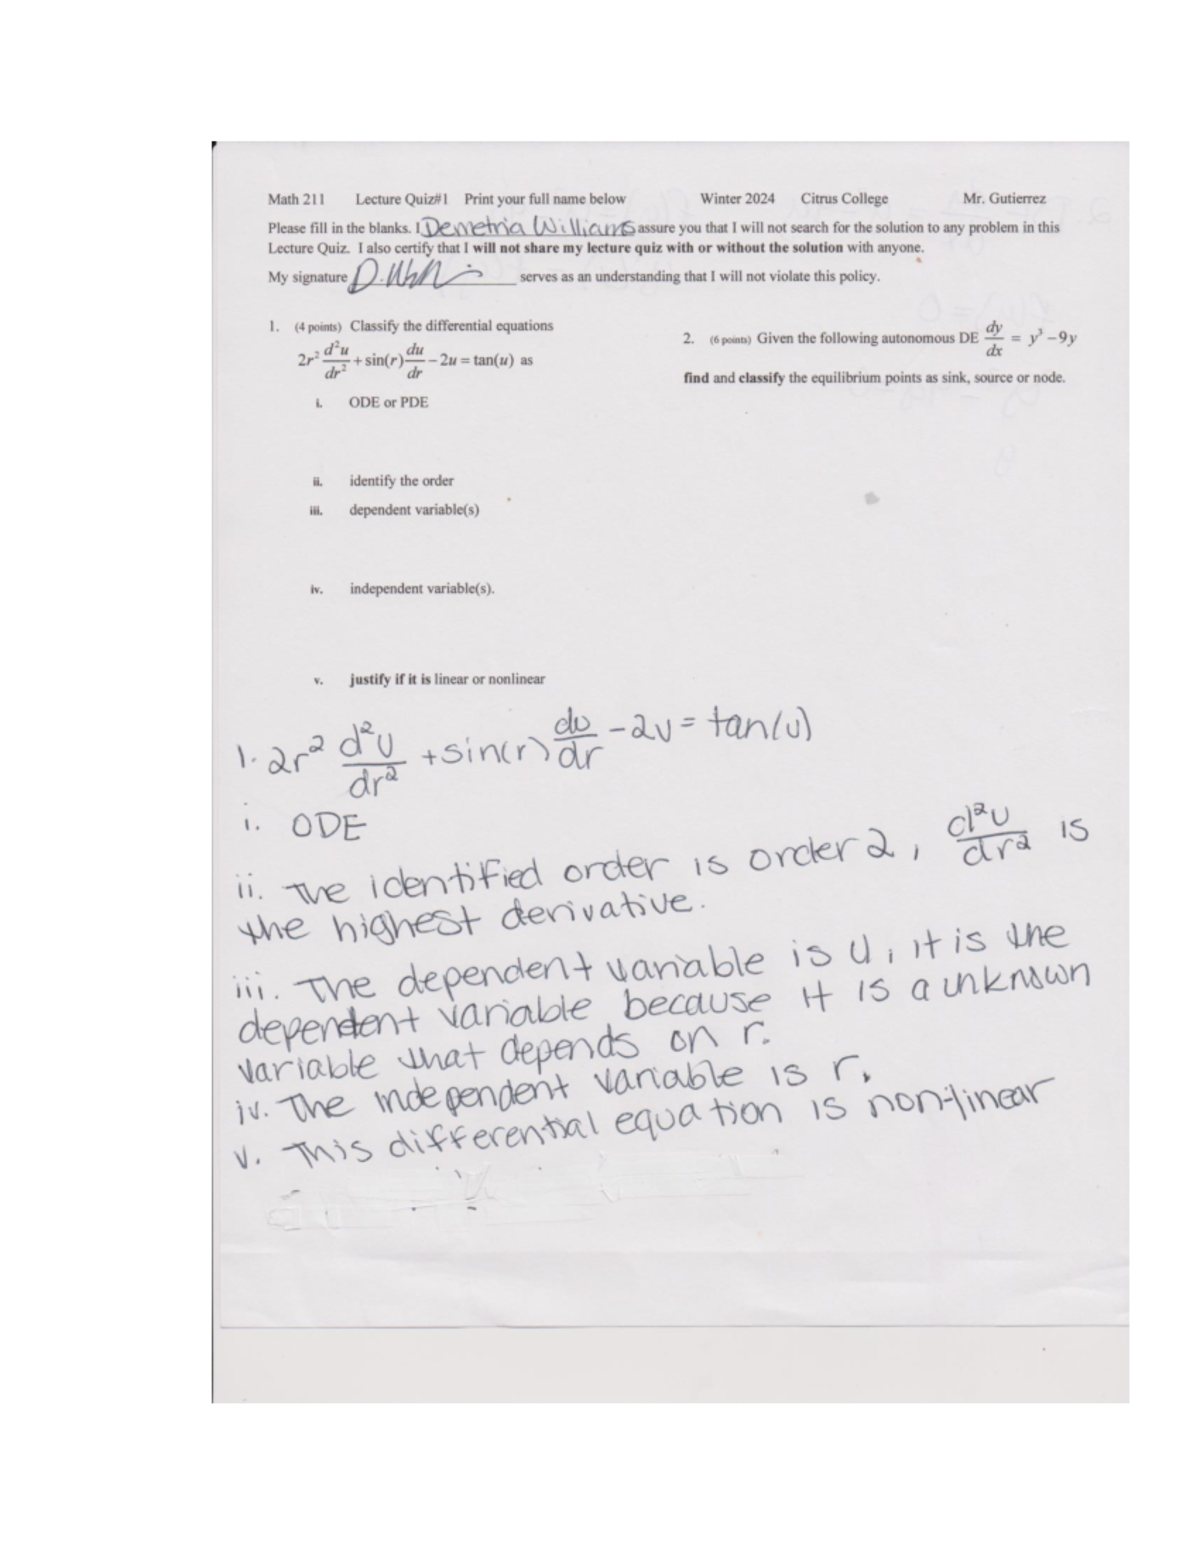 Math 211 Lecture Quiz#1 Print your full name below Winter 2024 Citrus College Mr. Gutierrez
Please fill in the blanks. I Demetria Williams assure you that I will not search for the solution to any problem in this
Lecture Quiz. I also certify that I will not share my lecture quiz with or without the solution with anyone.
My signature serves as an understanding that I will not violate this policy.
1. (4 points) Classify the differential equations
2r² d²u/dr² + sin(r) du/dr − 2u = tan(u) as
i. ODE or PDE
ii. identify the order
iii. dependent variable(s)
iv. independent variable(s).
v. justify if it is linear or nonlinear
2. (6 points) Given the following autonomous DE dy/dx = y³ − 9y
find and classify the equilibrium points as sink, source or node.
1. 2r² d²u/dr² + sin(r) du/dr − 2u = tan(u)
i. ODE
ii. The identified order is order 2, d²u/dr² is
the highest derivative.
iii. The dependent variable is u, it is the
dependent variable because it is a unknown
variable that depends on r.
iv. The independent variable is r.
v. This differential equation is non-linear